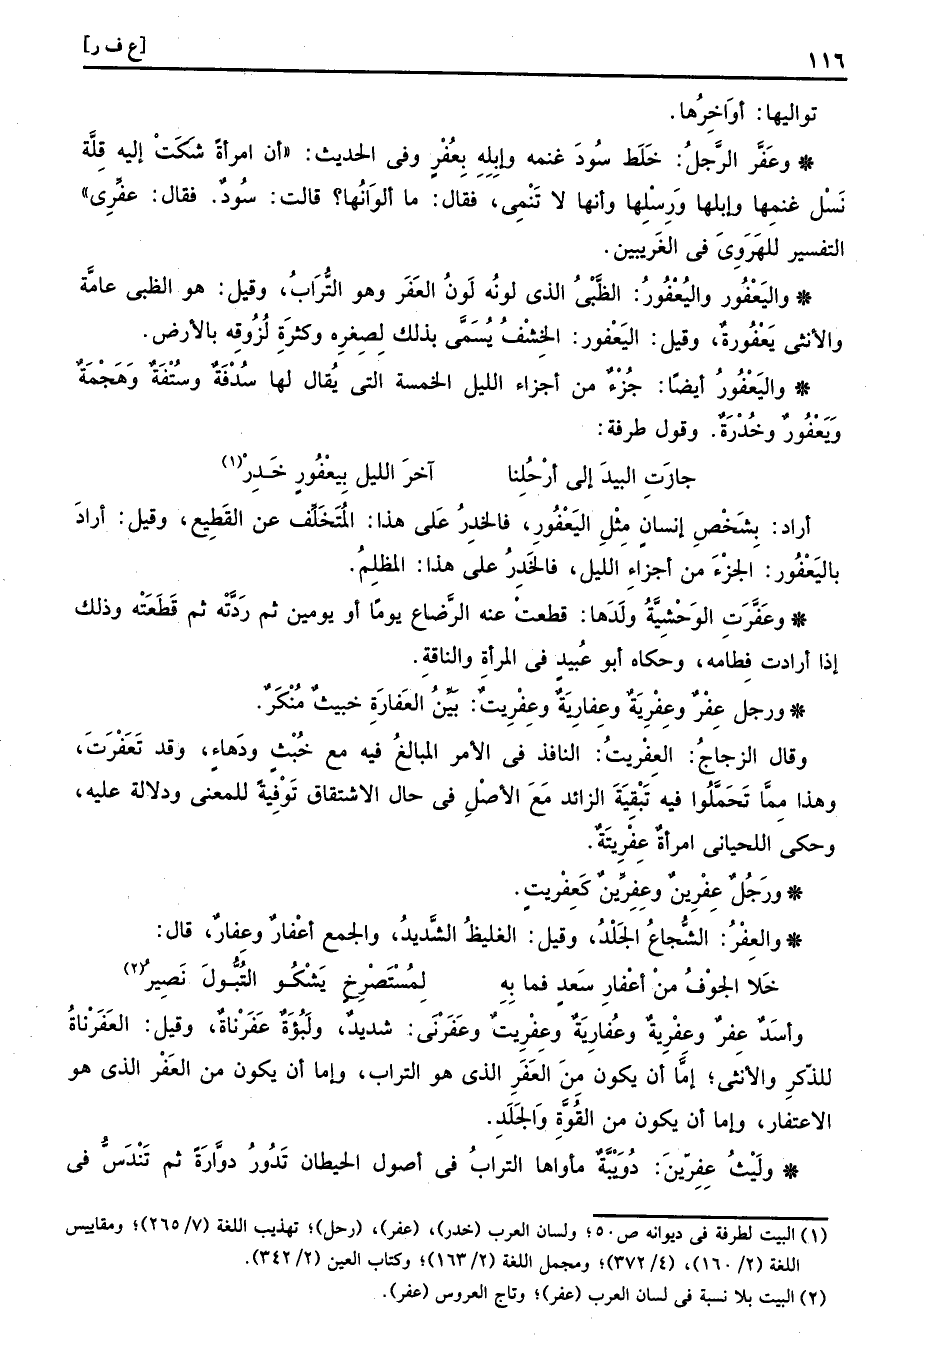 ١١٦ [ع ف ر]
تواليها: أوَاخِرُها.
* وعَفَّر الرَّجلُ: خَلَط سُودَ غنمه وإبِلِه بِعُفْرٍ وفى الحديث: «أن امرأةً شكَتْ إليه قِلَّة
نَسْل غنمِها وإبلها ورَسِلْها وأنها لا تَنْمِى، فقال: ما ألوَانُها؟ قالت: سُودٌ. فقال: عفِّرى»
التفسير للهَرَوِىَ فى الغَرِيبين.
* واليَعْفُور واليُعْفُورُ: الظَّبْىُ الذى لونُه لَونُ العَفَر وهو التُّرَابُ، وقيل: هو الظبى عامَّة
والأنثى يَعْفُورةٌ، وقيل: اليَعْفور: الخِشْفُ يُسَمَّى بذلك لِصغرِه وكثرَةِ لُزُوقِه بالأرض.
* واليَعْفُورُ أيضًا: جُزْءٌ من أجزاء الليل الخمسة التى يُقال لها سُدْفَةٌ وسُتْفَةٌ وَهَجْمَةٌ
وَيَعْفُورٌ وخُدْرَةٌ. وقول طرفة:
جازَتِ البيدَ إلى أرْحُلِنا آخرَ الليل بِيعْفُورٍ خَـدِرْ(١)
أراد: بِشَخْصِ إنسانٍ مِثْلِ اليَعْفُورِ، فالخدِرُ عَلى هذا: المُتَخلِّف عن القَطِيع، وقيل: أرادَ
باليَعْفُور: الجزْءَ من أجزاء الليل، فالخَدِرُ على هذا: المظلِمُ.
* وعَفَّرَتِ الوَحْشيَّةُ ولَدَها: قطعتْ عنه الرَّضاع يومًا أو يومين ثم ردَّتْه ثم قَطَعَتْه وذلك
إذا أرادت فِطامه، وحكاه أبو عُبيدٍ فى المرأة والناقةِ.
* ورجل عِفْرٌ وعِفْرِيَةٌ وعِفارِيَةٌ وعِفْرِيتٌ: بَيِّنُ العَفارَةِ خبيثٌ مُنْكَرٌ.
وقال الزجاجُ: العِفْرِيتُ: النافذ فى الأمر المبالغُ فيه مع خُبْثٍ ودَهاءٍ، وقد تَعَفْرَتَ،
وهذا مِمَّا تَحَمَّلُوا فيه تَبْقِيَةَ الزائد مَعَ الأصْلِ فى حال الاشتقاق تَوْفِيةً للمعنى ودلالة عليه،
وحكى اللحيانى امرأةٌ عِفْرِيتَةٌ.
* ورَجُلٌ عِفْرِينٌ وعِفِرِّينٌ كَعِفْريتٍ.
* والعِفْرُ: الشُّجاعُ الجَلْدُ، وقيل: الغليظُ الشَّديدُ، والجمع أعْفارٌ وعِفارٌ، قال:
خَلا الجَوْفُ منْ أعْفارِ سَعدٍ فما بِهِ لِمُسْتَصْرِخٍ يَشْكُـو التُّبُـولَ نَصِيرُ(٢)
وأسَدٌ عِفرٌ وعِفْرِيةٌ وعُفارِيَةٌ وعِفْرِيتٌ وعَفَرْنَى: شديدٌ، ولَبُؤَةٌ عَفَرْناةٌ، وقيل: العَفَرْناةُ
للذّكرِ والأنثى؛ إمَّا أن يكون مِنَ العَفَرِ الذى هو التراب، وإما أن يكون من العَفْر الذى هو
الاعتفار، وإما أن يكون من القُوَّةِ وَالجَلَدِ.
* ولَيْثُ عِفِرّينَ: دُوَيْبَّةٌ مأواها الترابُ فى أصول الحيطان تَدُورُ دوَّارَةً ثم تَنْدَسُّ فى
(١) البيت لطرفة فى ديوانه ص٥٠؛ ولسان العرب (خدر)، (عفر)، (رحل)؛ تهذيب اللغة (٧/ ٢٦٥)؛ ومقاييس
اللغة (٢/ ١٦٠)، (٤/ ٣٧٢)؛ ومجمل اللغة (٢/ ١٦٣)؛ وكتاب العين (٢/ ٣٤٢).
(٢) البيت بلا نسبة فى لسان العرب (عفر)؛ وتاج العروس (عفر).